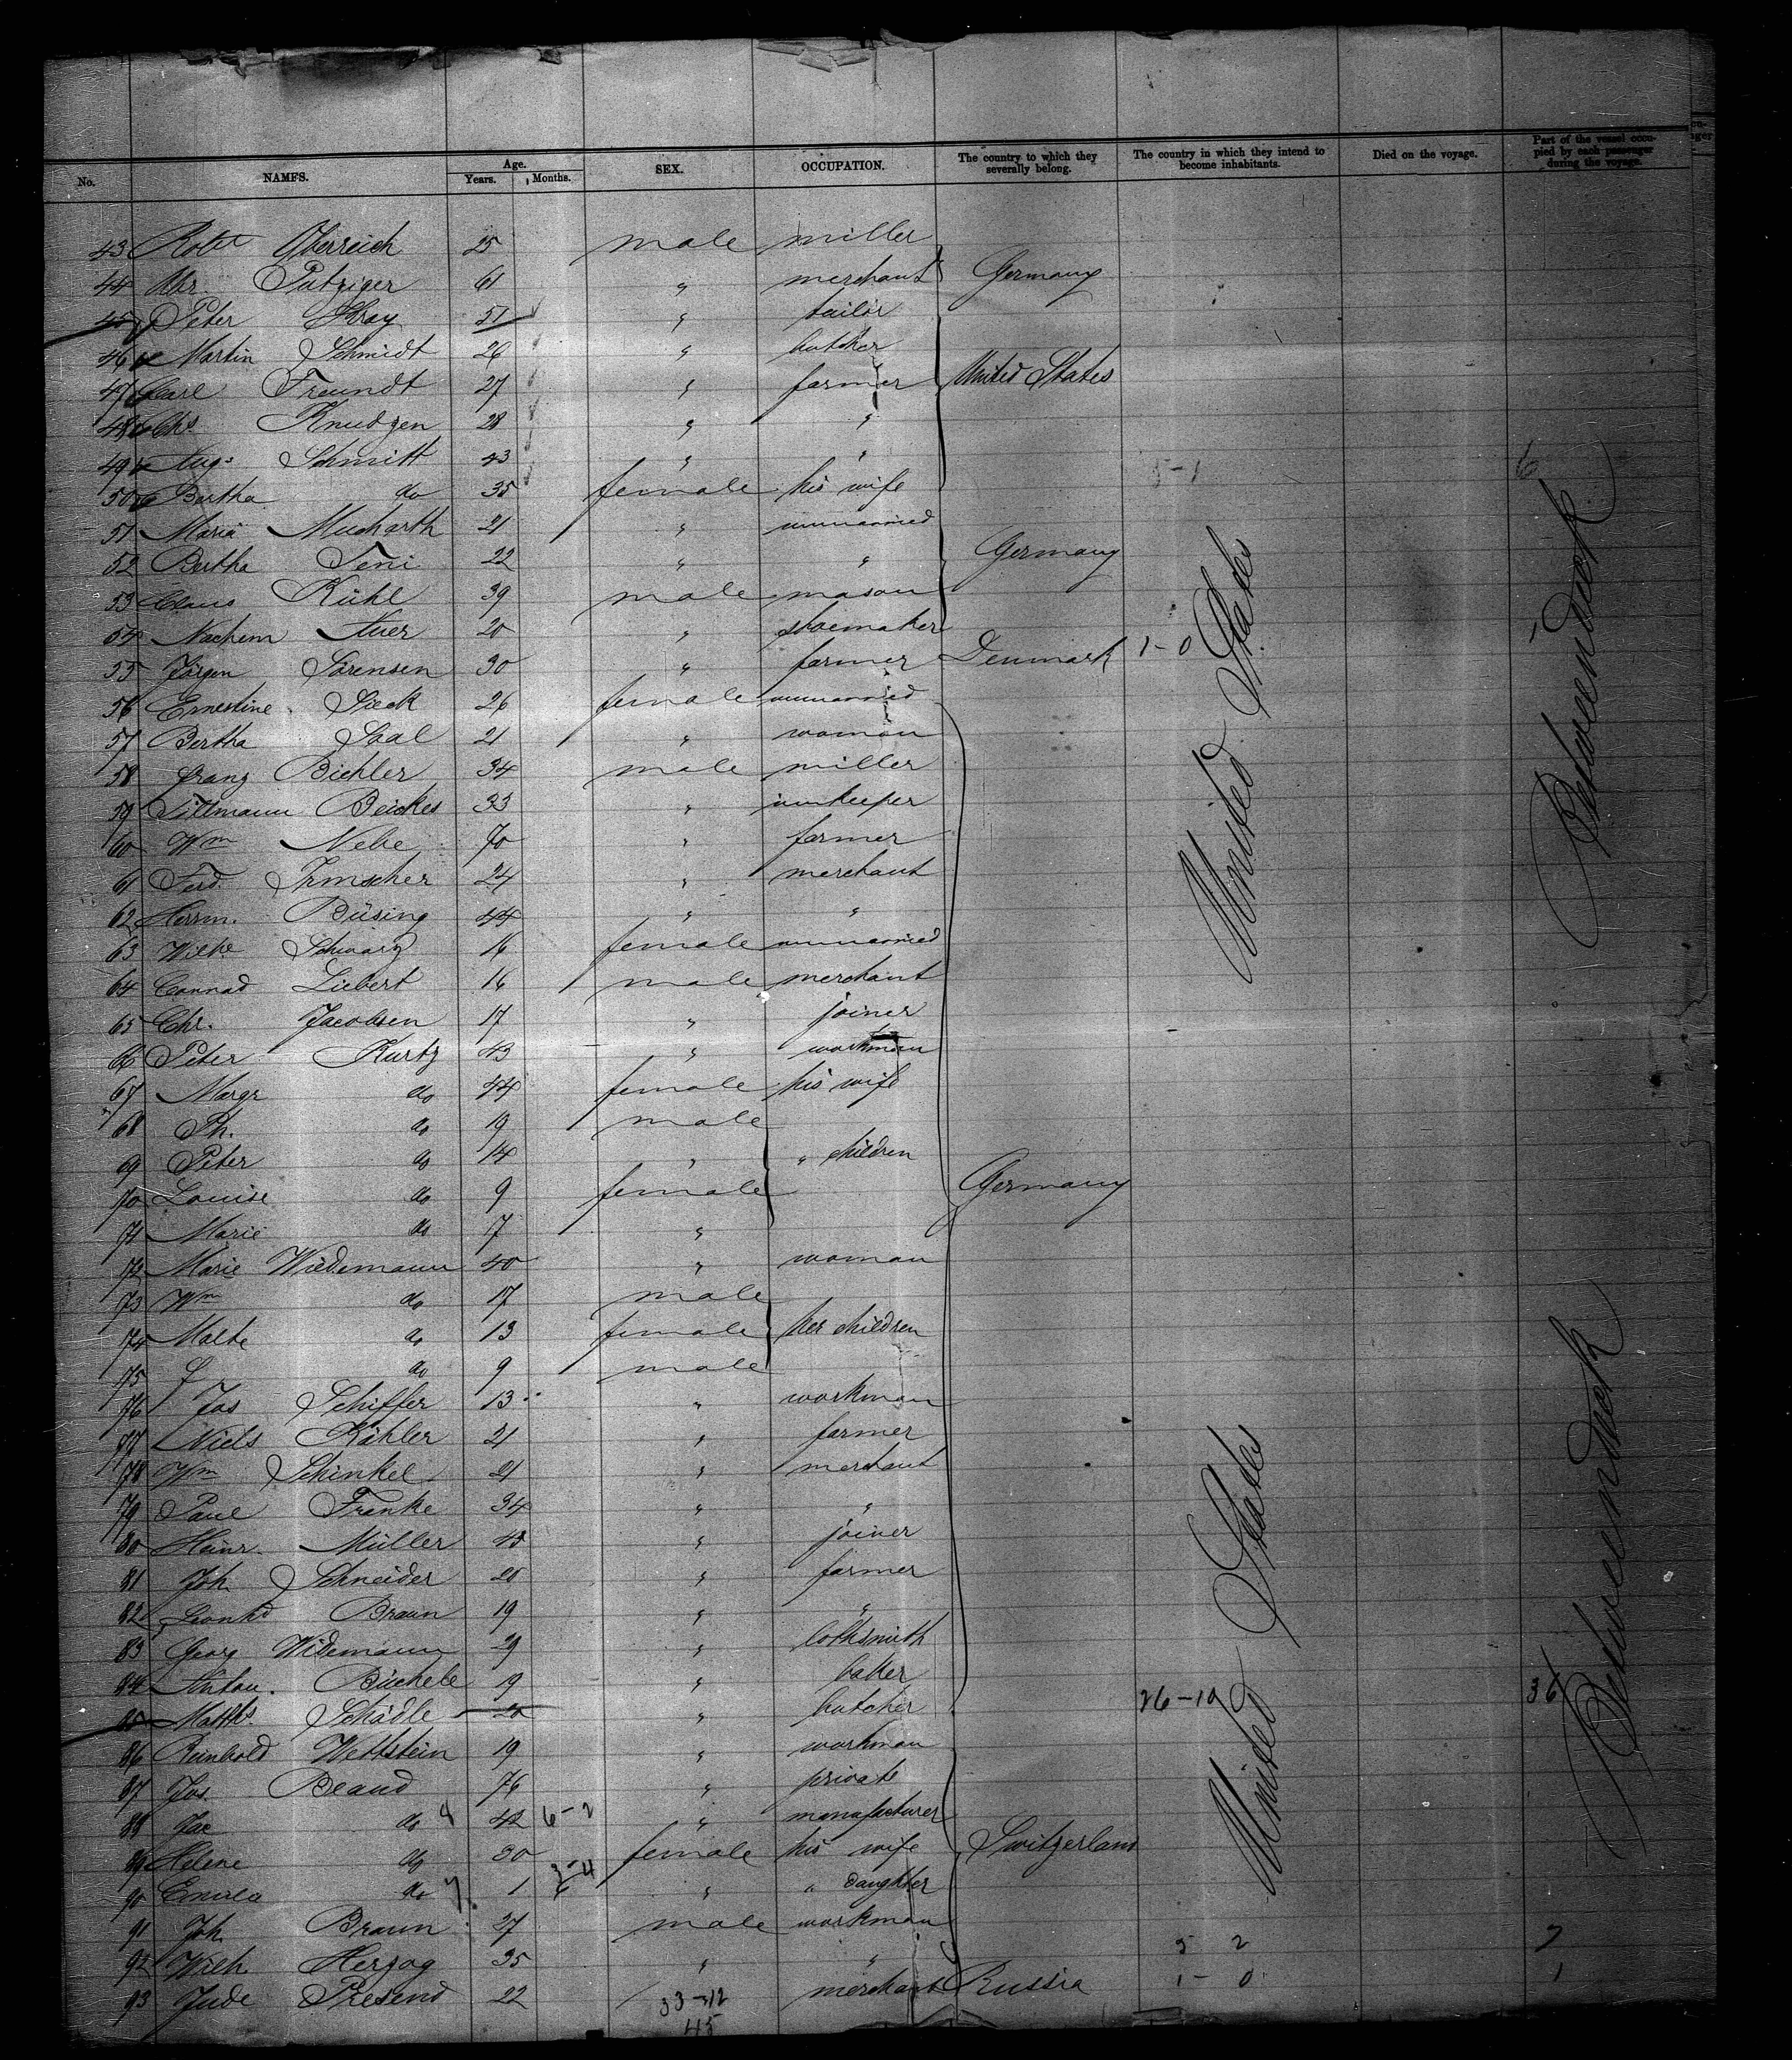 No. NAMES. Age. Years. Months. SEX. OCCUPATION. The country to which they severally belong. The country in which they intend to become inhabitants. Died on the voyage. Part of the vessel occupied by each passenger during the voyage.
43 Robt Oberreich 25 male miller
44 Chr. Putziger 61 " merchant Germany
45 Peter Gray 51 " tailor
46 Martin Schmidt 26 " butcher
47 Carl Freundt 27 " farmer United States
48 Chs Knudzen 28 " "
49 Aug. Schmitt 43 " " 5-1 6
50 Bertha do 35 female his wife
51 Maria Mucharth 21 " unmarried
52 Bertha Feni 22 " " Germany
53 Claus Kühl 39 male mason
54 Nachem Auer 20 " shoemaker
55 Jörgen Sörensen 30 " farmer Denmark 1-0 1
56 Ernestine Sieck 26 female unmarried
57 Bertha Saal 21 " woman
58 Franz Bichler 34 male miller
59 Tillmann Beickes 33 " innkeeper
60 Wm Nebe 70 " farmer
61 Ferd. Irmscher 24 " merchant
62 Herrm. Büsing 44 " "
63 Wilhe Schwarz 16 female unmarried
64 Conrad Liebert 16 male merchant
65 Chr. Jacobsen 17 " joiner
66 Peter Kurtz 43 " workman
67 Margr do 44 female his wife
68 Ph. do 19 male
69 Peter do 14 " " children
70 Louise do 9 female Germany
71 Marie do 7 "
72 Marie Wiedemann 40 " woman
73 Wm do 17 male
74 Malte do 13 female her children
75 do 9 male
76 Jos Schiffer 13 " workman
77 Niels Köhler 21 " farmer
78 Wm Schinkel 21 " merchant
79 Paul Franke 34 " "
80 Heinr. Müller 43 " joiner
81 Joh Schneider 28 " farmer
82 Leonhd Braun 19 " "
83 Georg Widemann 29 " locksmith
84 Anton. Büchele 19 " baker
85 Matths Schädle 20 " butcher 26-10 36
86 Reinhold Wettstein 19 " workman
87 Jos. Beaud 76 " private
88 Jac do 42 6-2 " manufacturer
89 Helene do 30 female his wife Switzerland
90 Emila do 1 " " daughter
91 Joh. Braun 27 male workman
92 Wilh Herzog 35 " " 5 2 7
93 Jude Presend 22 merchant Russia 1-0 1
33-12
45
United States
United States
Betweendeck
Betweendeck